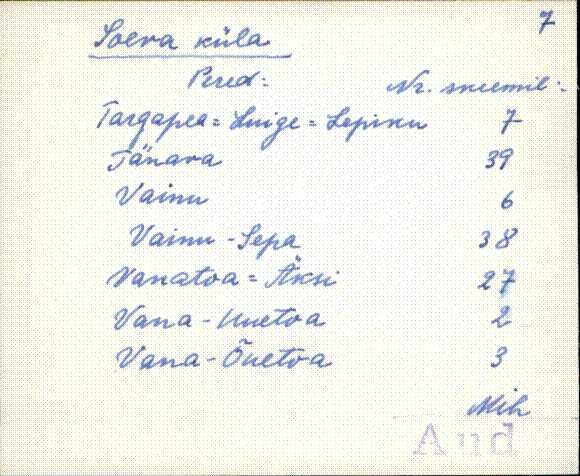 7
Soeva küla
Pered: Nr. skeemil:
Targapea = Luige = Lepiku 7
Tänava 39
Vainu 6
Vainu - Sepa 38
Vanatoa = Äksi 27
Vana - Uuetoa 2
Vana - Õuetoa 3
Mih
Aud